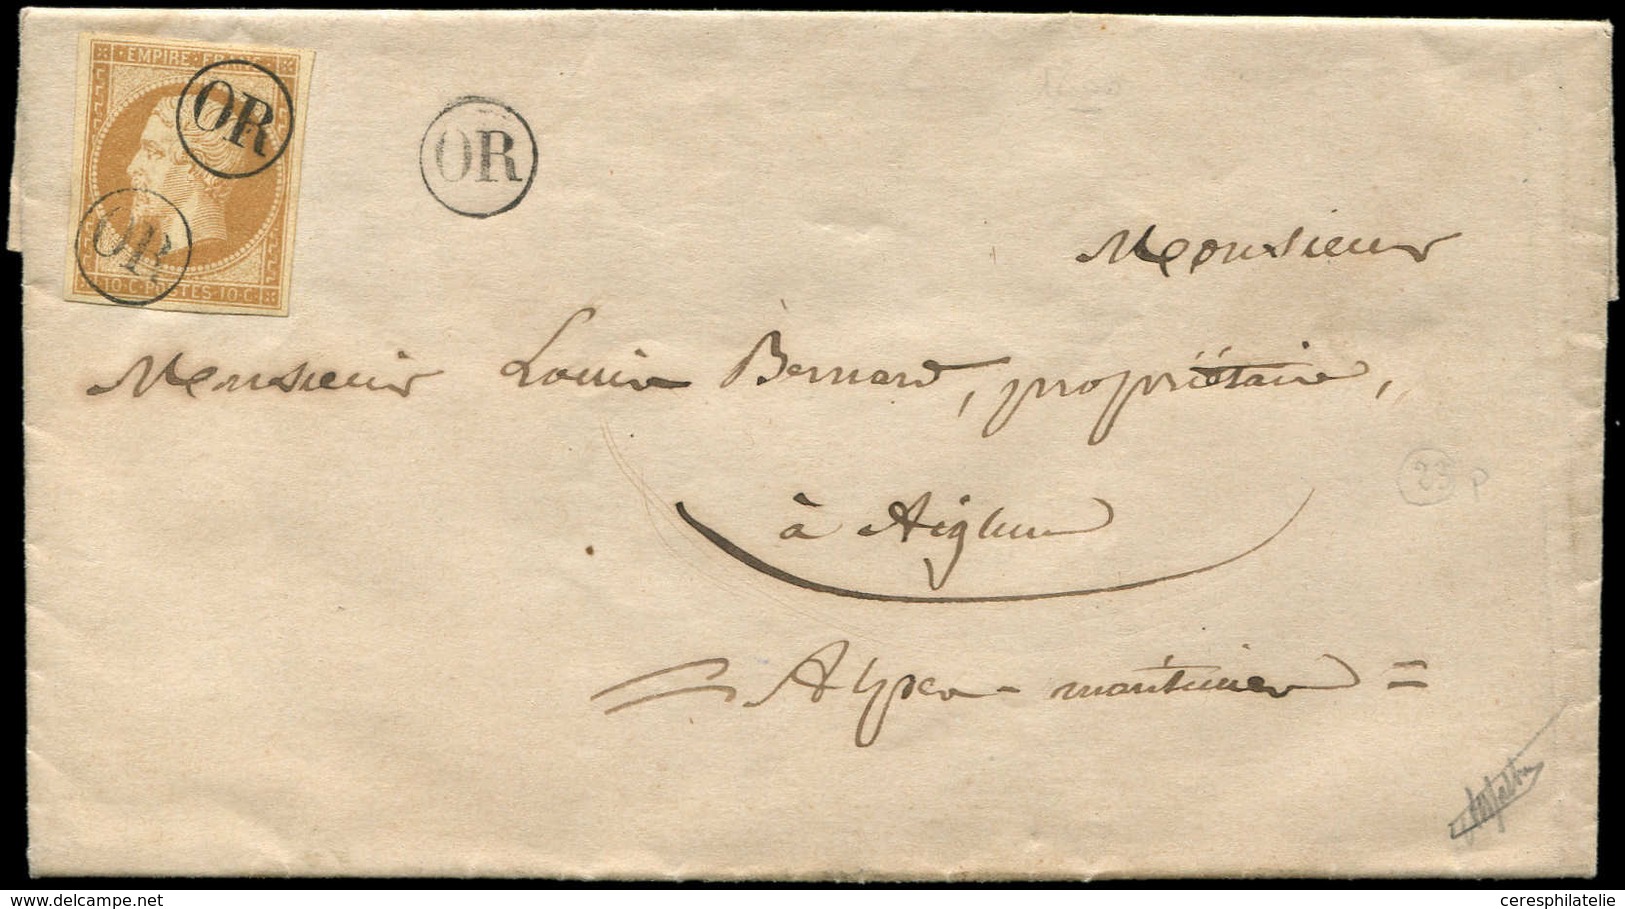 EMPIRE FRANC
OR
OR
OR
10·C·POSTES·10·C·
Monsieur
Monsieur Louis Bernard, propriétaire,
à Aiglun
23 P
= Alpes-maritimes =
delcampe.net
ceresphilatelie